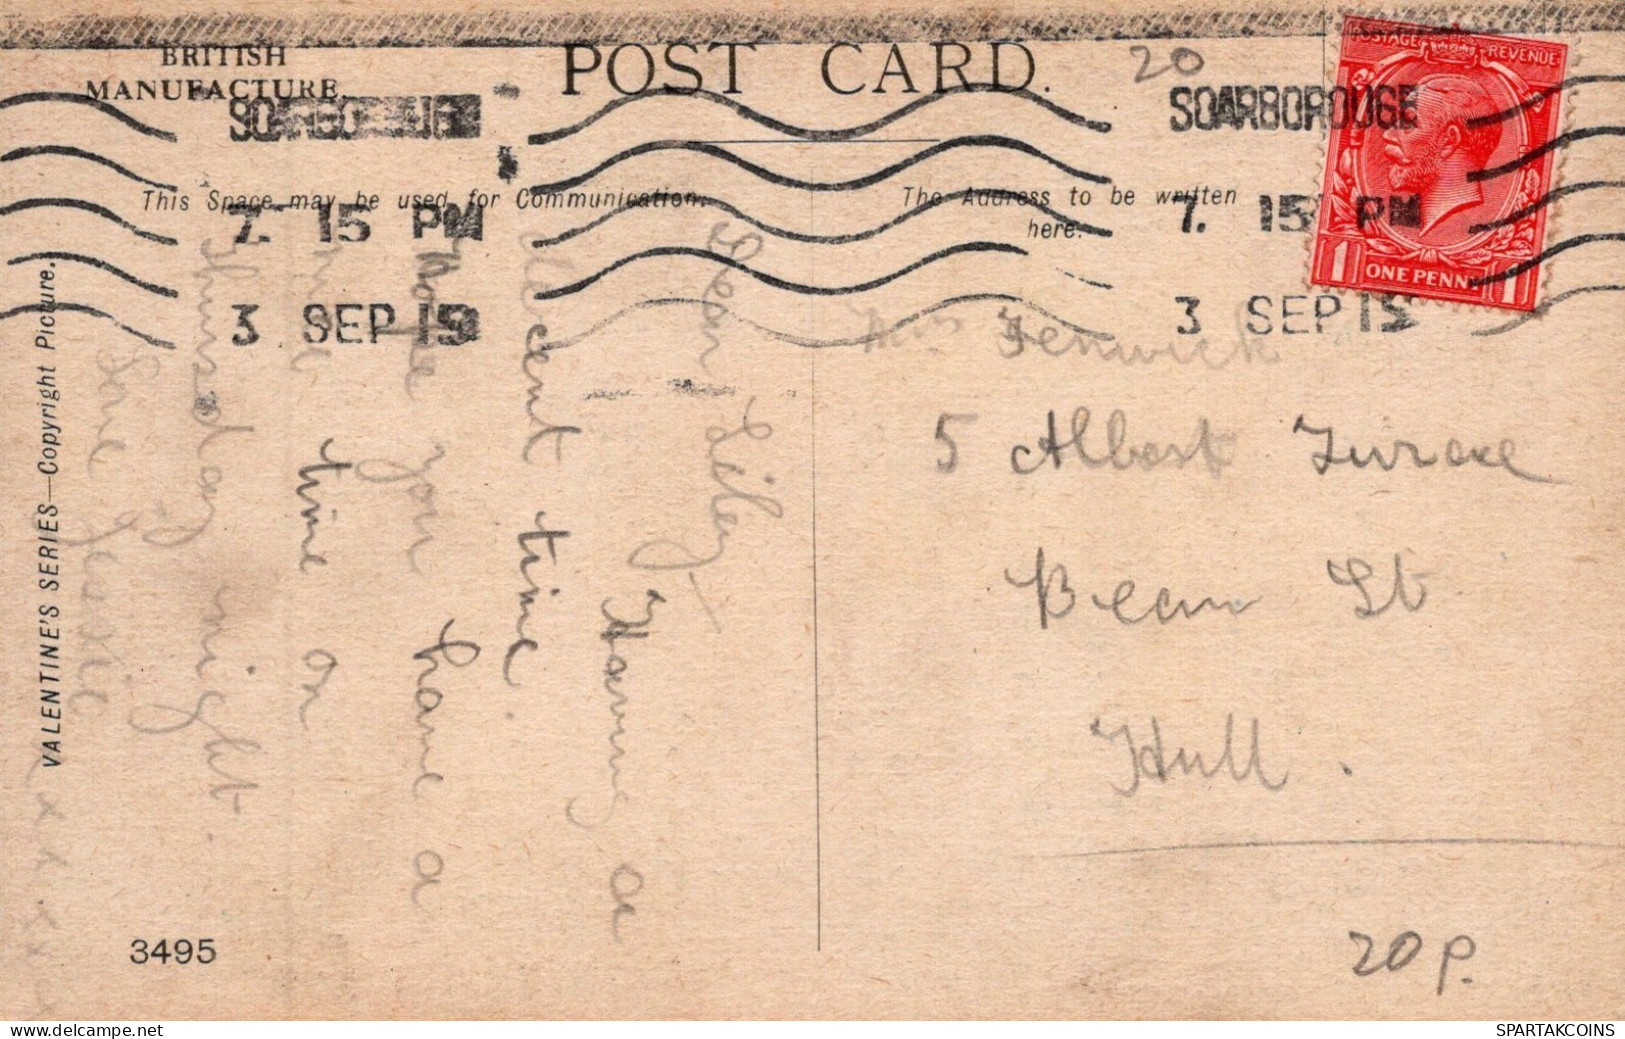 BRITISH
MANUFACTURE.
POST CARD.
20
POSTAGE REVENUE
SCARBOROUGH
7. 15 PM
3 SEP 19
SCARBOROUGH
7. 15 PM
3 SEP 19
1 ONE PENNY 1
This Space may be used for Communication.
The Address to be written
here.
VALENTINE'S SERIES—Copyright Picture.
Dear Liley
Having a
decent time.
Hope you have a
time on
Thursday night.
Love Jessie
x x x x x x
Fenwick
5 Albert Turace
Bean St
Hull.
20p.
3495
SPARTAKCOINS
www.delcampe.net